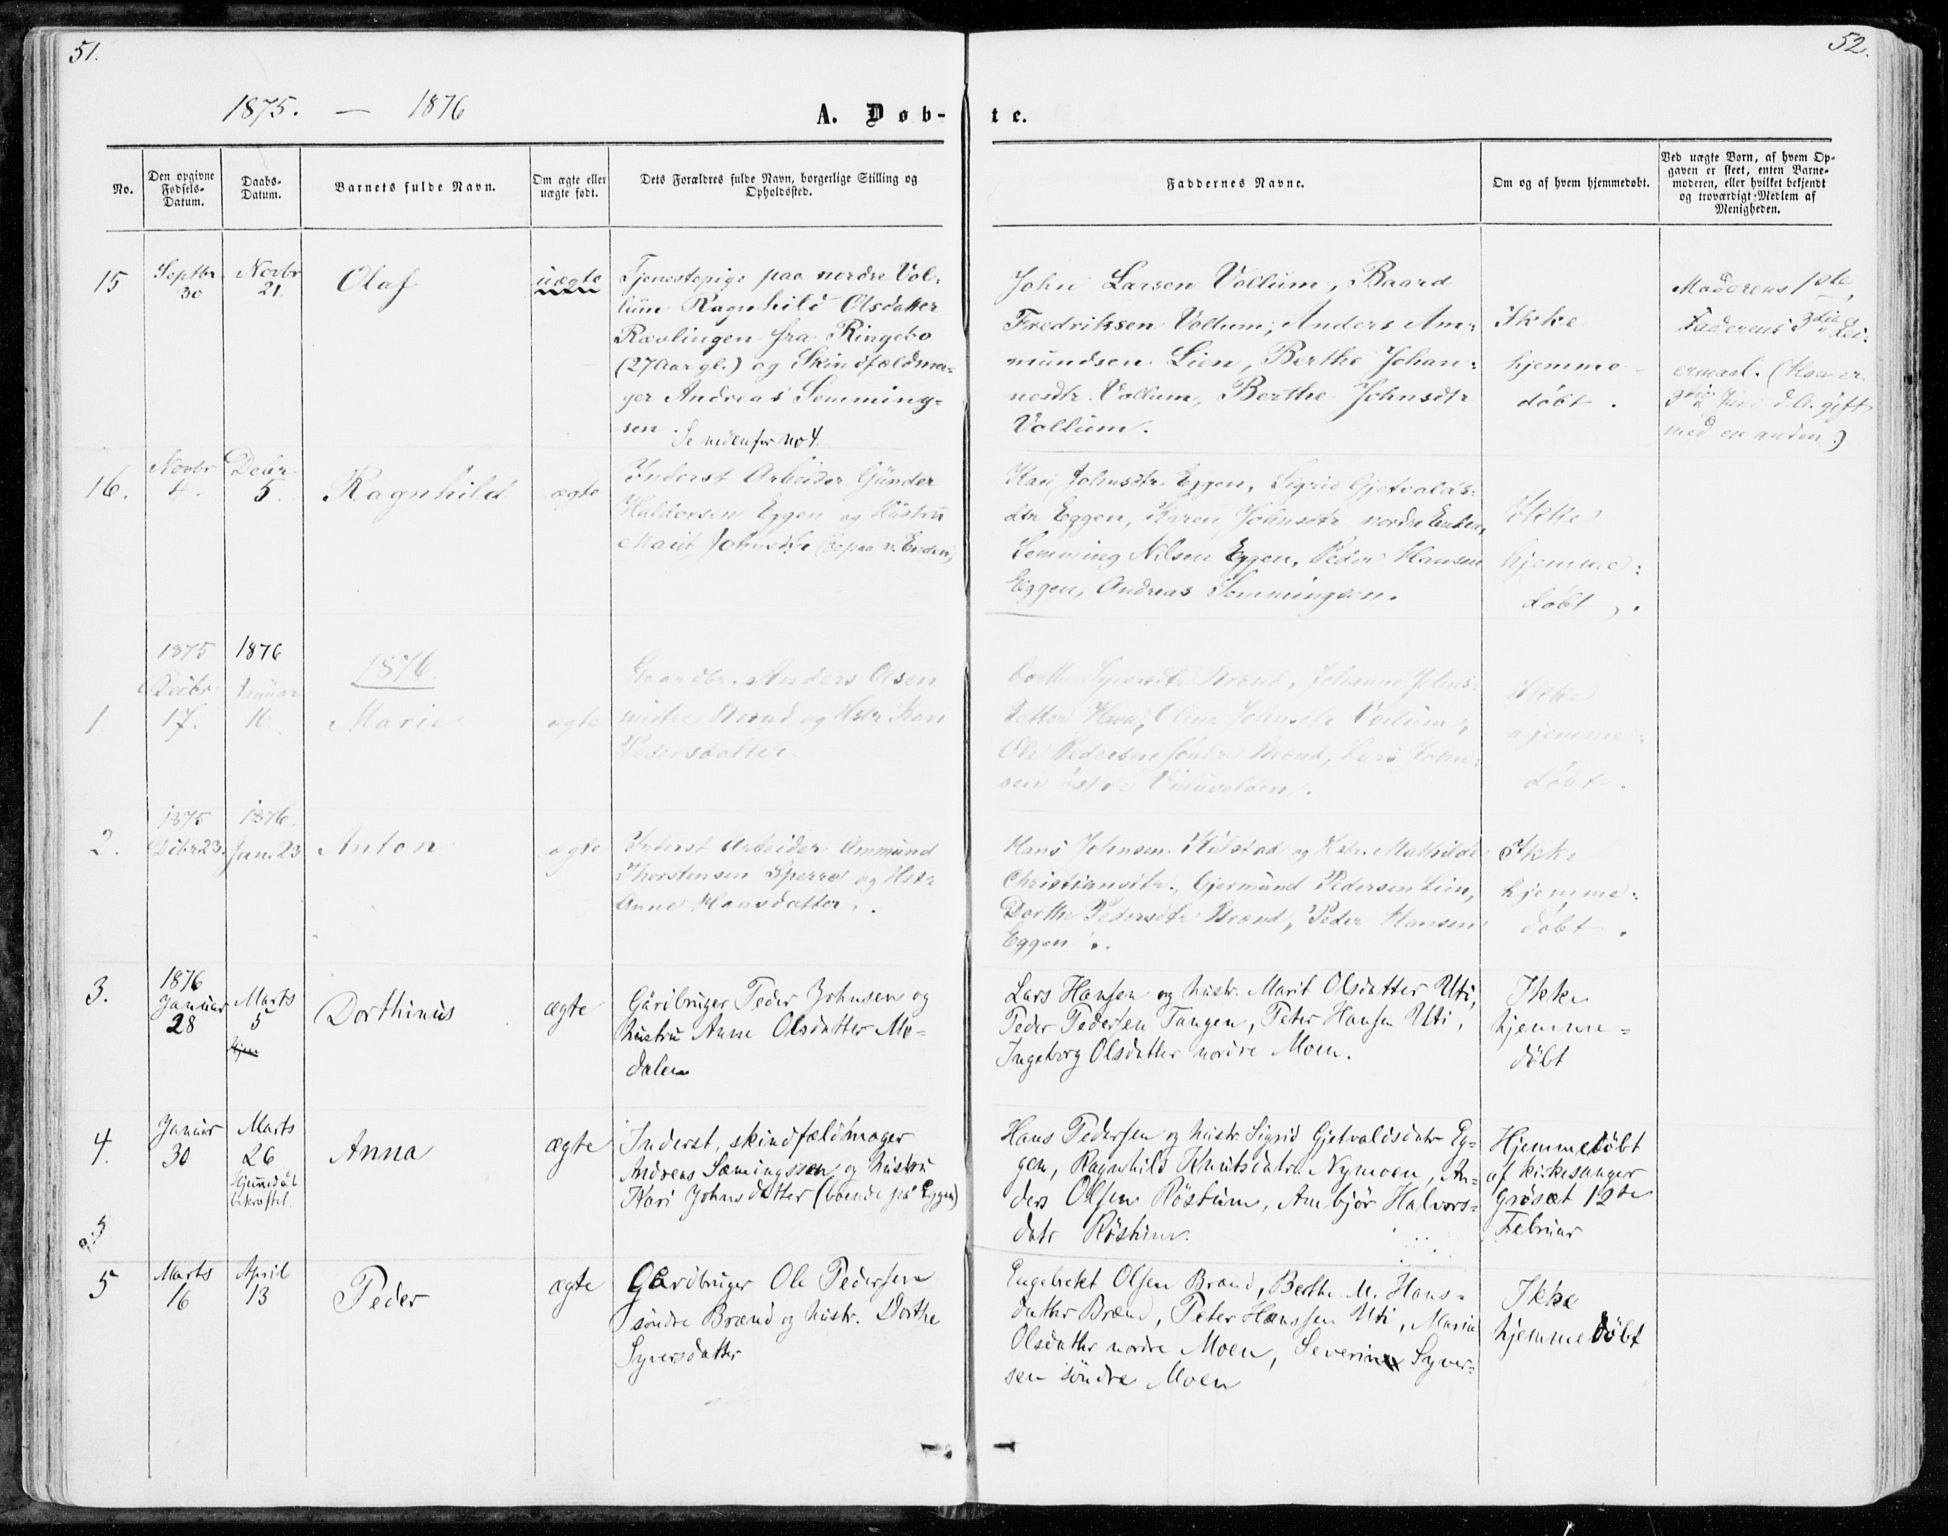 51.
52.
1875. — 1876
A. Døb-
te.
No.
Den opgivne Fødsels-Datum.
Daabs-Datum.
Barnets fulde Navn.
Om ægte eller uægte født.
Dets Forældres fulde Navn, borgerlige Stilling og Opholdssted.
Faddernes Navne.
Om og af hvem hjemmedøbt.
Ved uægte Børn, af hvem Op-
gaven er skeet, enten Barne-
moderen, eller hvilket bekjendt
og troværdigt Medlem af
Menigheden.
15
Septbr
30
Novbr
21.
Olaf
uægte
Tjenestepige paa nordre Vol-
lum Ragnhild Olsdatter
Rævlingen fra Ringebo
(27 Aar gl.) og Skindfældma-
ger Andreas Semming-
sen. Se nedenfor no 4.
John Larsen Vollum, Baard
Fredriksen Vollum, Anders Am-
mundsen Lien, Berthe Johan-
nesdtr. Vollum, Berthe Johnsdtr
Vollum.
Ikke
hjemme-
døbt.
Moderens 1ste,
Faderens 3die Lei-
ermaal. (Han er
Juni d.A. gift
med en anden.)
16.
Novbr
4.
Decbr
5.
Ragnhild
ægte
Inderst Arbeider Gunder
Haldorsen Eggen og Hustru
Marit Johnsdtr
Kari Johnsdtr. Eggen, Sigrid Gjetvalds-
dtr Eggen, Karen Johnsdtr nordre Enden,
Semming Nilsen Eggen, Peder Hansen
Eggen, Andreas Semmingsen.
Ikke
hjemme-
døbt.
1875
Decbr
17.
1876
Januar
16.
1876.
1.
Marie
ægte
Gaardbr. Anders Olsen
Brænd og Hstr Kari
Pedersdatter.
Dorthe Syversdtr Brænd, Johanne Johns-
datter Johnsdtr Vollum,
Ole Pedersen søndre Brænd, Lars John-
sen østre
Ikke
hjemme-
døbt.
2.
1875
Decbr 23.
1876.
Jan. 23
Anton
ægte
Inderst Arbeider Ammund
Thorstensen Sperre og Hstr
Anne Hansdatter.
Hans Johnsen Kulstad og Hstr. Mathilde
Christiansdtr., Gjermund Pedersen Lien,
Dorthe Pedersdtr Brænd, Peder Hansen
Eggen.
Ikke
hjemme-
døbt.
3.
1876
Januar
28
Marts
5
Dorthinus
ægte
Gårdbruger Peder Johnsen og
hustru Anne Olsdatter Mo-
dalen
Lars Hansen og hustr. Marit Olsdatter Uti,
Peder Pedersen Tangen, Peter Hansen Uti,
Ingeborg Olsdatter nordre Moen.
Ikke
hjemme-
døbt
4.
Januar
30
Marts
26
Hjemmedåb
bekræftet.
Anna
ægte
Inderst, skindfældmager
Andreas Sæmingssen og hustru
Kari Johnsdatter (boende på Eggen)
Hans Pedersen og hustr. Sigrid Gjetvaldsdatr Eg-
gen, Ragnhild Knutsdatr. Nymoen, An-
ders Olsen Røstum, Ambjør Halvors-
datr Røstum.
Hjemmedøbt
af kirkesanger
Grøsæt 12te
Februar
5
Marts
16
April
13
Peder
ægte
Gårdbruger Ole Pedersen
søndre Brænd og hustr. Dorthe
Syversdatter
Engebrekt Olsen Brænd, Berthe M. Hans-
datter Brænd, Peter Hanssen Uti, Maria
Olsdatter nordre Moen, Severin Syver-
sen søndre Moen
Ikke
hjemmedøbt